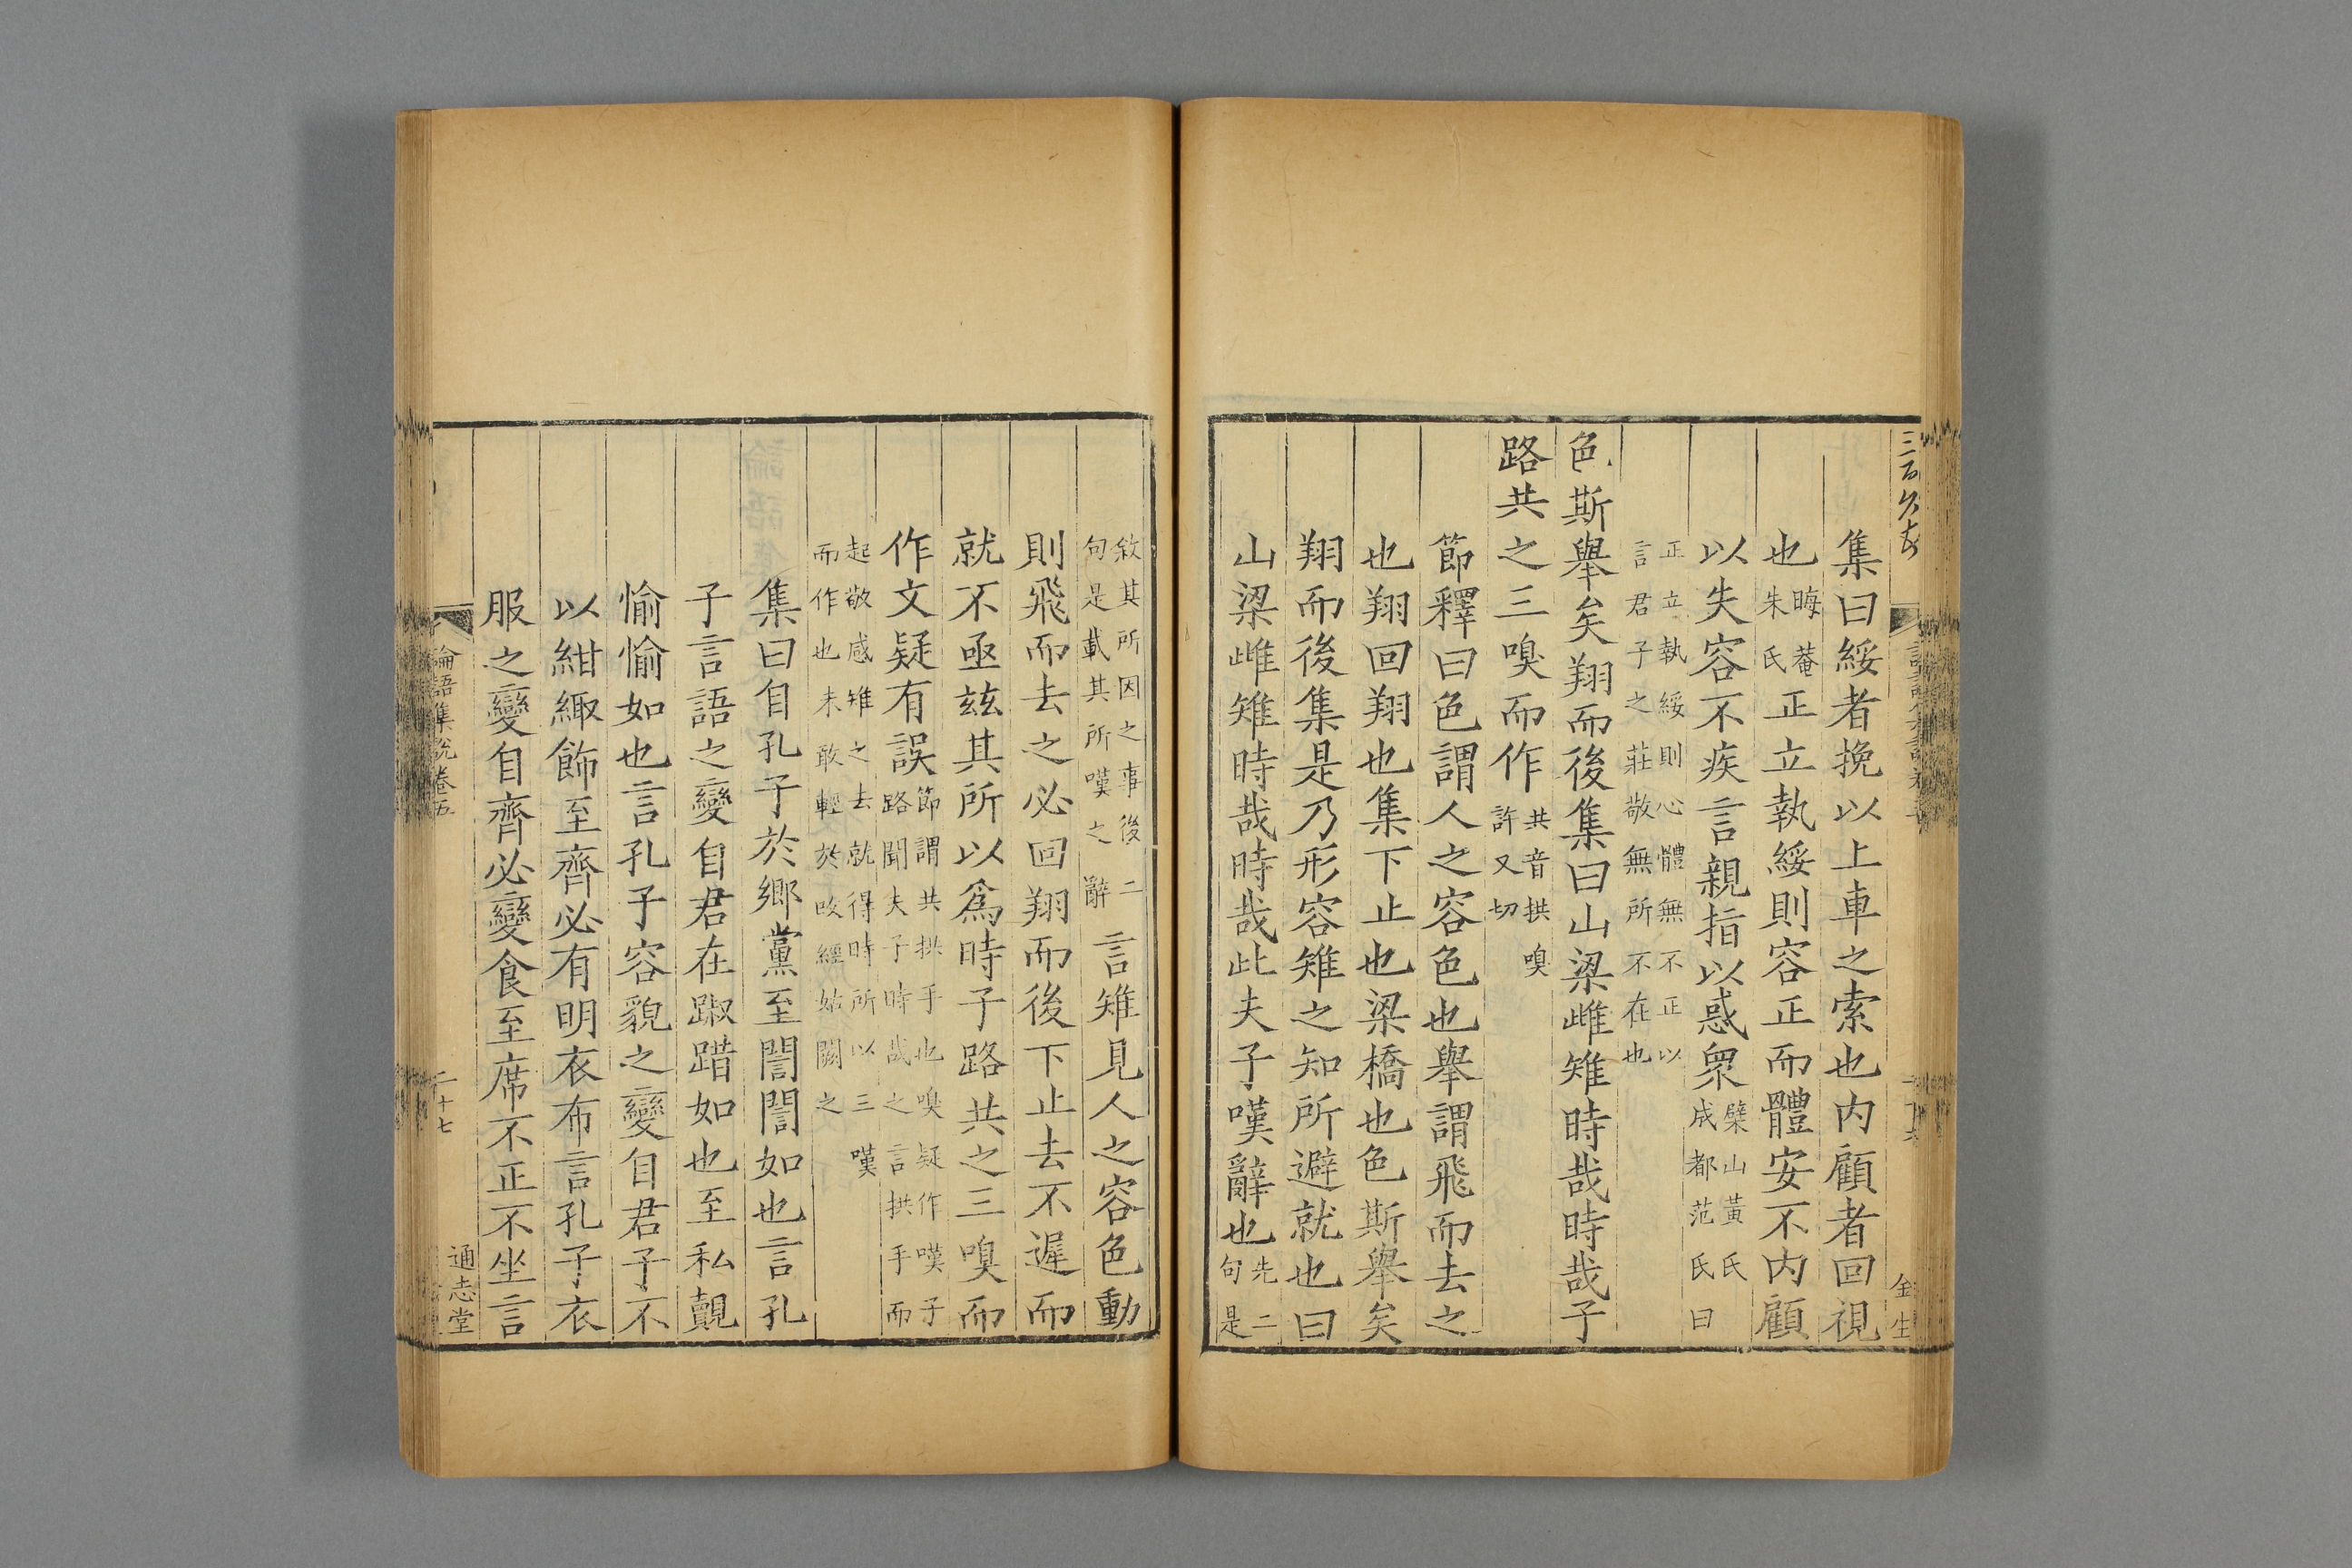 集曰綏者挽以上車之索也内顧者回視
也晦菴朱氏正立執綏則容正而體安不内顧
以失容不疾言親指以惑衆櫱山黃氏成都范氏曰
正立執綏則心體無不正以言君子之莊敬無所不在也
色斯舉矣翔而後集曰山梁雌雉時哉時哉子
路共之三嗅而作共音拱嗅許又切
節釋曰色謂人之容色也舉謂飛而去之
也翔回翔也集下止也梁橋也色斯舉矣
翔而後集是乃形容雉之知所避就也曰
山梁雌雉時哉時哉此夫子嘆辭也先二句是
金生
敘其所因之事後二句是載其所嘆之辭言雉見人之容色動
則飛而去之必回翔而後下止去不遲而
就不亟兹其所以爲時子路共之三嗅而
作文疑有誤節謂共拱手也嗅疑作嘆子路聞夫子時哉之言拱手而
起敬感雉之去就得時所以三嘆而作也未敢輕於改經姑闕之
集曰自孔子於鄉黨至誾誾如也言孔
子言語之變自君在踧踖如也至私覿
愉愉如也言孔子容貌之變自君子不
以紺緅飾至齊必有明衣布言孔子衣
服之變自齊必變食至席不正不坐言
論語集說卷五
二十七
通志堂